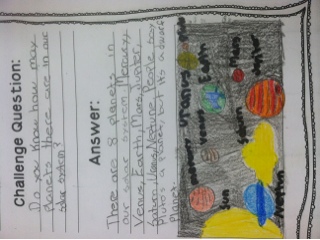 Challenge Question:
Do you know how many
planets there are in our
solar system?
Answer:
There are 8 planets in
our solar system Mercury,
Venus, Earth, Mars, Jupiter,
Saturn, Uranus, Neptune. People say
Pluto's a planet, but it's a dwarf
Planet.
mercury
Uranus
venus
Earth
Mars
Jupiter
Saturn
Sun